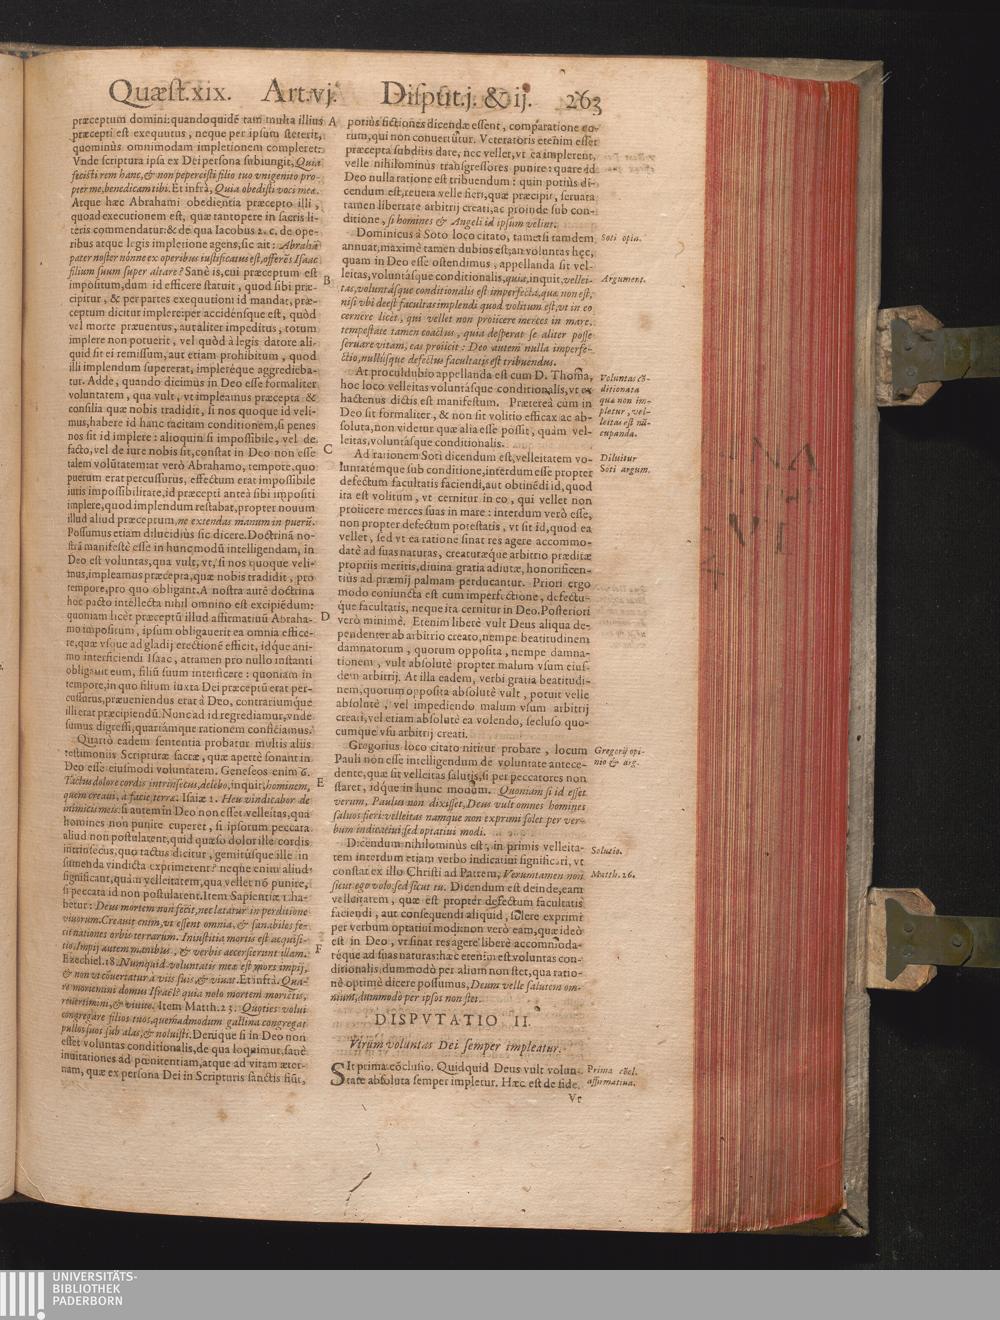 Quæst.xix. Art.vj. Disput.j. & ij. 263
præceptum domini: quandoquidē tam multa illius
præcepti est exequutus, neque per ipsum steterit,
quominùs omnimodam impletionem compleret:
Vnde scriptura ipsa ex Dei persona subiungit, Quia
fecisti rem hanc, & non pepercisti filio tuo vnigenito pro-
pter me, benedicam tibi. Et infrà, Quia obedisti voci meæ.
Atque hæc Abrahami obedientia præcepto illi,
quoad executionem est, quæ tantopere in sacris li-
teris commendatur: & de qua Iacobus 2. c. de ope-
ribus atque legis impletione agens, sic ait: Abrahā
pater noster nonne ex operibus iustificatus est, offerēs Isaac
filium suum super altare? Sanè is, cui præceptum est
impositum, dum id efficere statuit, quod sibi præ-
cipitur, & per partes exequutioni id mandat, præ-
ceptum dicitur implere: per accidénsque est, quòd
vel morte præuentus, aut aliter impeditus, totum
implere non potuerit, vel quòd à legis datore ali-
quid sit ei remissum, aut etiam prohibitum, quod
illi implendum supererat, impleréque aggrediebá-
tur. Adde, quando dicimus in Deo esse formaliter
voluntatem, qua vult, vt impleamus præcepta &
consilia quæ nobis tradidit, si nos quoque id veli-
mus, habere id hanc tacitam conditionem, si penes
nos sit id implere: alioquin si impossibile, vel de
facto, vel de iure nobis sit, constat in Deo non esse
talem volūtatem: at verò Abrahamo, tempore, quo
puerum erat percussurus, effectum erat impossibile
iuris impossibilitate, id præcepti anteà sibi impositi
implere, quod implendum restabat, propter nouum
illud aliud præceptum, ne extendas manum in puerū.
Possumus etiam dilucidiùs sic dicere. Doctrinā no-
strā manifestè esse in hunc modū intelligendam, in
Deo est voluntas, qua vult, vt, si nos quoque veli-
mus, impleamus præcepta, quæ nobis tradidit, pro
tempore, pro quo obligant. A nostra autē doctrina
hoc pacto intellecta nihil omnino est excipiēdum:
quoniam licèt præceptū illud affirmatiuū Abraha-
mo impositum, ipsum obligauerit ea omnia effice-
re, quæ vsque ad gladij erectionē efficit, idque ani-
mo interficiendi Isaac, attamen pro nullo instanti
obligauit eum, filiū suum interficere: quoniam in
tempore, in quo filium iuxta Dei præceptū erat per-
cussurus, præueniendus erat à Deo, contrariumque
illi erat præcipiendū. Nunc ad id regrediamur, vnde
sumus digressi, quartámque rationem conficiamus.
Quartò eadem sententia probatur multis aliis
testimoniis Scripturæ sacræ, quæ apertè sonant in
Deo esse eiusmodi voluntatem. Geneseos enim 6.
Tactus dolore cordis intrinsecus, delebo, inquit, hominem,
quem creaui, à facie terræ. Isaiæ 1. Heu vindicabor de
inimicis meis: si autem in Deo non esset velleitas, qua
homines non punire cuperet, si ipsorum peccata
aliud non postularent, quid quæso dolor ille cordis
intrinsecus, quo tactus dicitur, gemitúsque ille in
sumenda vindicta exprimerent? neque enim aliud
significant, quàm velleitatem, qua vellet nō punire,
si peccata id non postularent. Item Sapientiæ 1. ha-
betur: Deus mortem non fecit, nec lætatur in perditione
viuorum. Creauit enim, vt essent omnia, & sanabiles fe-
cit nationes orbis terrarum. Iniustitia mortis est acquisi-
tio. Impij autem manibus, & verbis accersierunt illam.
Ezechiel. 18. Numquid voluntatis meæ est mors impij,
& non vt cōuertatur à viis suis, & viuat. Et infrà. Qua-
re moriemini domus Israël? quia nolo mortem morientis,
reuertimini, & viuite. Item Matth. 23. Quoties volui
congregare filios tuos, quemadmodum gallina congregat
pullos suos sub alas, & noluisti. Denique si in Deo non
esset voluntas conditionalis, de qua loquimur, sanè
inuitationes ad pœnitentiam, atque ad vitam æter-
nam, quæ ex persona Dei in Scripturis sanctis fiūt,
A
B
C
D
E
F
potiùs fictiones dicendæ essent, comparatione eo-
rum, qui non conuertūtur. Veteratoris etenim esset
præcepta subditis dare, nec velle, vt ea implerent,
velle nihilominùs transgressores punire: quare id
Deo nulla ratione est tribuendum: quin potiùs di-
cendum est, reuera velle fieri, quæ præcipit, seruata
tamen libertate arbitrij creati, ac proinde sub con-
ditione, si homines & Angeli id ipsum velint.
Dominicus à Soto loco citato, tametsi tamdem
annuat, maximè tamen dubios est, an voluntas hęc,
quam in Deo esse ostendimus, appellanda sit vel-
leitas, voluntásque conditionalis, quia, inquit, vellei-
tas, voluntásque conditionalis est imperfecta, quæ non est,
nisi vbi deest facultas implendi quod volitum est, vt in eo
cernere licet, qui vellet non proiicere merces in mare,
tempestate tamen coactus, quia desperat se aliter posse
seruare vitam, eas proiicit: Deo autem nulla imperfe-
ctio, nullúsque defectus facultatis est tribuendus.
At proculdubio appellanda est cum D. Thoma,
hoc loco velleitas voluntásque conditionalis, vt ex
hactenus dictis est manifestum. Præterea cùm in
Deo sit formaliter, & non sit volitio efficax ac ab-
soluta, non videtur quæ alia esse possit, quàm vel-
leitas, voluntásque conditionalis.
Ad rationem Soti dicendum est, velleitatem vo-
luntatémque sub conditione, interdum esse propter
defectum facultatis faciendi, aut obtinēdi id, quod
ita est volitum, vt cernitur in eo, qui vellet non
proiicere merces suas in mare: interdum verò esse,
non propter defectum potestatis, vt sit id, quod ea
vellet, sed vt ea ratione sinat res agere accommo-
datè ad suas naturas, creaturæque arbitrio præditæ
propriis meritis, diuina gratia adiutæ, honorificen-
tiùs ad præmij palmam perducantur. Priori ergo
modo coniuncta est cum imperfectione, defectu-
que facultatis, neque ita cernitur in Deo. Posteriori
verò minimè. Etenim liberè vult Deus aliqua de-
pendenter ab arbitrio creato, nempe beatitudinem
damnatorum, quorum opposita, nempe damna-
tionem, vult absolutè propter malum vsum eius-
dem arbitrij. At illa eadem, verbi gratia beatitudi-
nem, quorum opposita absolutè vult, potuit velle
absolutè, vel impediendo malum vsum arbitrij
creati, vel etiam absolutè ea volendo, secluso quo-
cumque vsu arbitrij creati.
Gregorius loco citato nititur probare, locum
Pauli non esse intelligendum de voluntate antece-
dente, quæ sit velleitas salutis, si per peccatores non
staret, idque in hunc modum. Quoniam si id esset
verum, Paulus non dixisset, Deus vult omnes homines
saluos fieri: velleitas namque non exprimi solet per ver-
bum indicatiui, sed optatiui modi.
Dicendum nihilominùs est, in primis velleita-
tem interdum etiam verbo indicatiui significari, vt
constat ex illo Christi ad Patrem, Veruntamen non
sicut ego volo: sed sicut tu. Dicendum est deinde, eam
velleitatem, quæ est propter defectum facultatis
faciendi, aut consequendi aliquid, solere exprimi
per verbum optatiui modi: non verò eam, quæ ideò
est in Deo, vt sinat res agere liberè accommoda-
téque ad suas naturas: hæc etenim est voluntas con-
ditionalis, dummodò per alium non stet, qua ratio-
nè optimè dicere possumus, Deum velle salutem om-
nium, dummodò per ipsos non stet.
DISPVTATIO II.
Vtrùm voluntas Dei semper impleatur.
SIt prima cōclusio. Quidquid Deus vult volun-
tate absoluta semper impletur. Hæc est de fide.
Vt
Soti opin.
Argument.
Voluntas cō-
ditionata
quæ non im-
pletur, vel-
leitas est nū-
cupanda.
Diluitur
Soti argum.
Gregorij opi-
nio & arg.
Solutio.
Matth. 26.
Prima cōcl.
affirmatiua.
UNIVERSITÄTS-
BIBLIOTHEK
PADERBORN